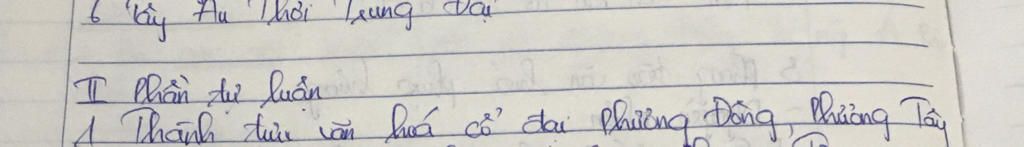 6 Tây Âu Thời Trung Đại
II Phần tự luận
1 Thành tựu văn hoá cổ đại Phương Đông, Phương Tây